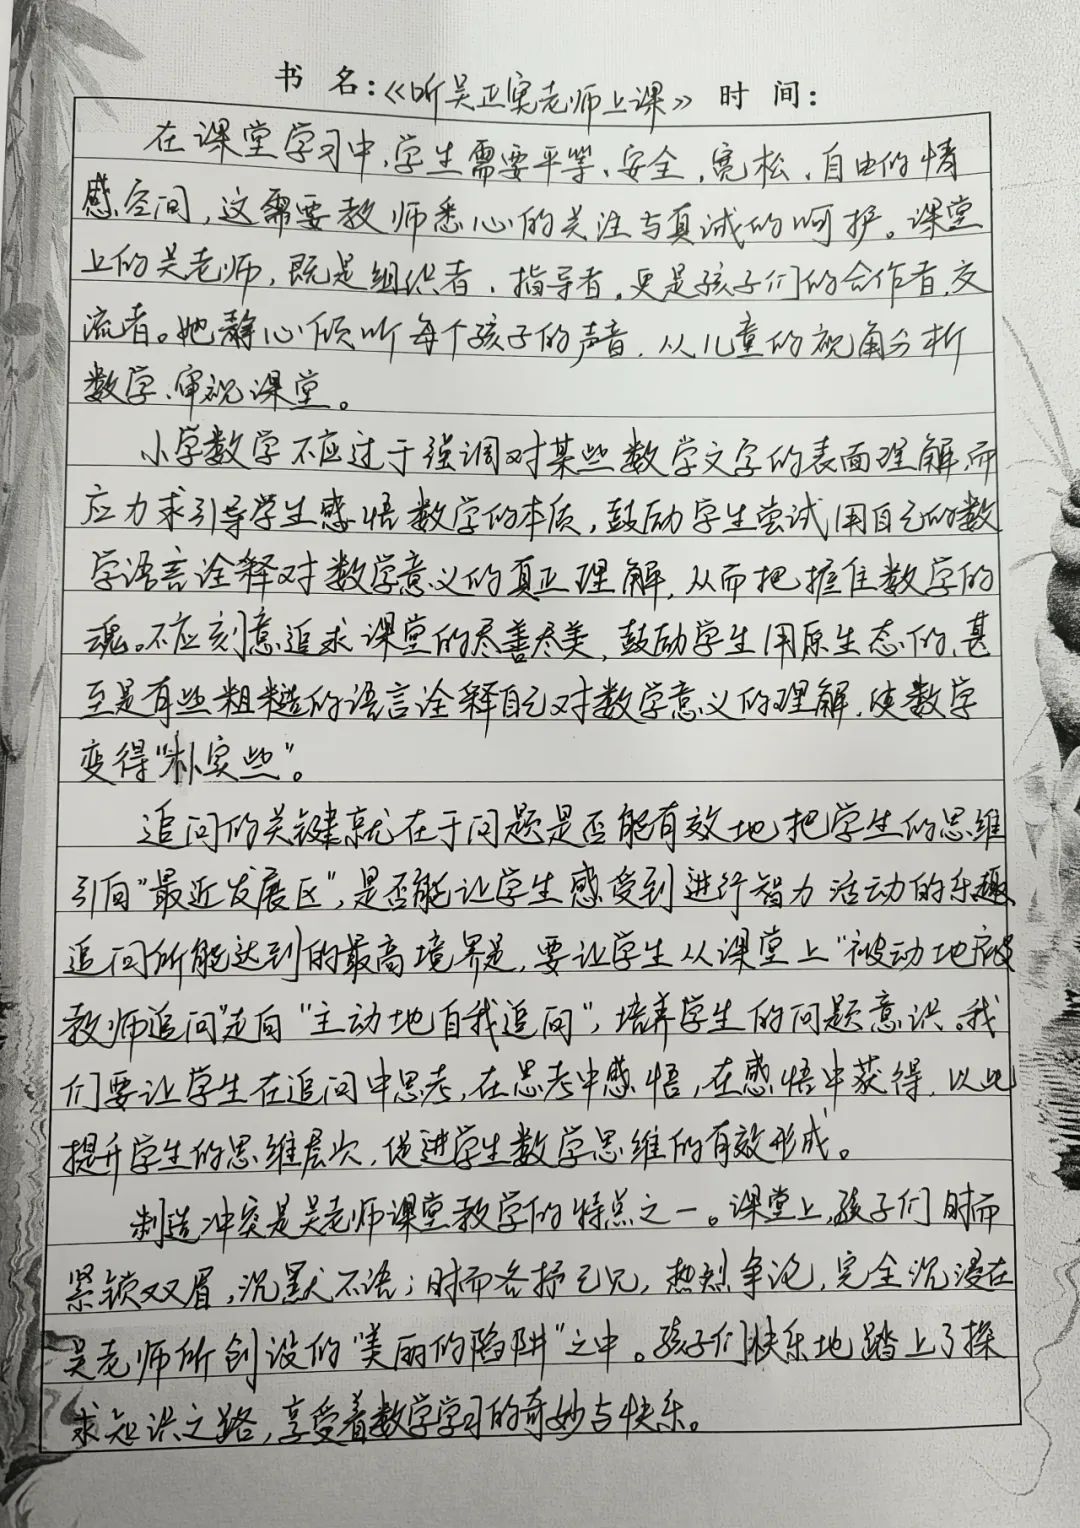 书 名：《听吴正宪老师上课》 时 间：
在课堂学习中，学生需要平等、安全，宽松、自由的情
感空间，这需要教师悉心的关注与真诚的呵护。课堂
上的吴老师，既是组织者、指导者，更是孩子们的合作者，交
流者。她静心倾听每个孩子的声音，从儿童的视角分析
数学、审视课堂。
小学数学不应过于强调对某些数学文字的表面理解，而
应力求引导学生感悟数学的本质，鼓励学生尝试用自己的数
学语言诠释对数学意义的真正理解，从而把握住数学的
魂。不应刻意追求课堂的尽善尽美，鼓励学生用原生态的，甚
至是有些粗糙的语言诠释自己对数学意义的理解，使数学
变得“朴实些”。
追问的关键就在于问题是否能有效地把学生的思维
引向“最近发展区”，是否能让学生感受到进行智力活动的乐趣
追问所能达到的最高境界是，要让学生从课堂上“被动地被
教师追问”走向“主动地自我追问”，培养学生的问题意识。我
们要让学生在追问中思考，在思考中感悟，在感悟中获得，以此
提升学生的思维层次，促进学生数学思维的有效形成。
制造冲突是吴老师课堂教学的特点之一。课堂上，孩子们时而
紧锁双眉，沉默不语；时而各抒己见，热烈争论，完全沉浸在
吴老师所创设的“美丽的陷阱”之中。孩子们快乐地踏上了探
求知识之路，享受着数学学习的奇妙与快乐。